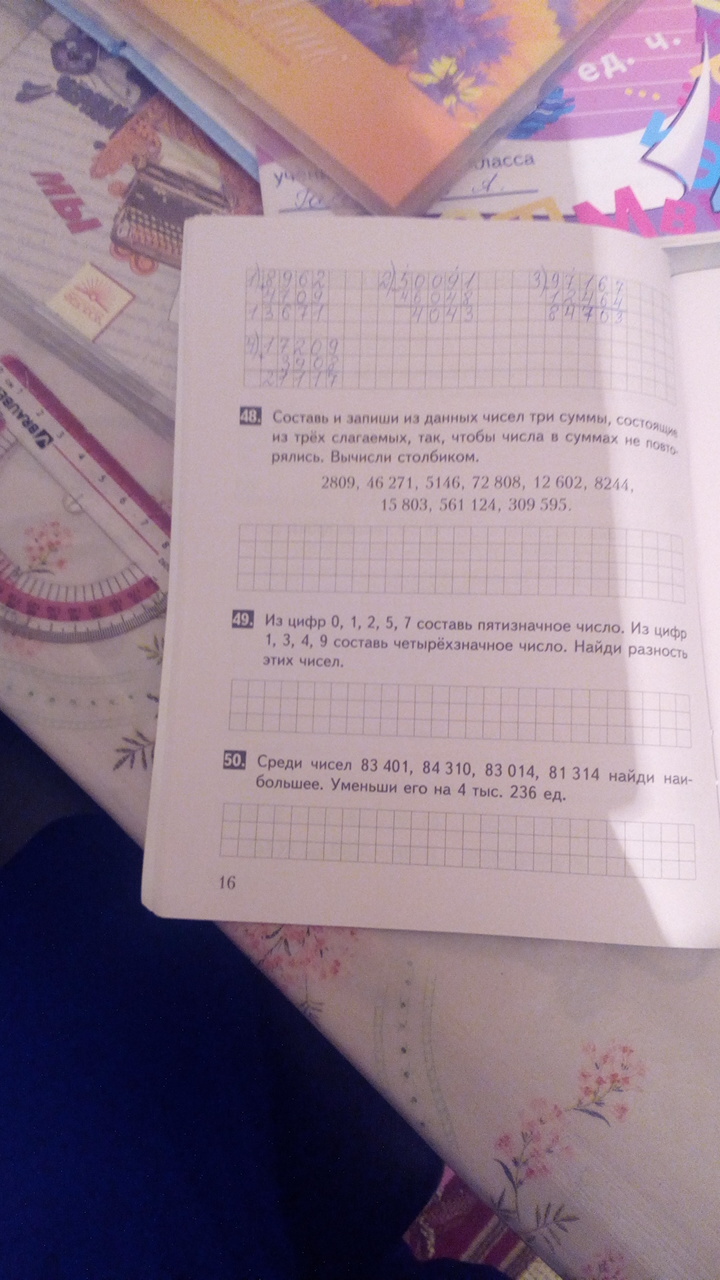 ед. ч.
класса
МЫ
BRAUBE
1) 8962 2) 50091 3) 97167
4709 46048 12464
13671 4043 84703
4) 17209
3908
21117
48. Составь и запиши из данных чисел три суммы, состоящие
из трёх слагаемых, так, чтобы числа в суммах не повто-
рялись. Вычисли столбиком.
2809, 46 271, 5146, 72 808, 12 602, 8244,
15 803, 561 124, 309 595.
49. Из цифр 0, 1, 2, 5, 7 составь пятизначное число. Из цифр
1, 3, 4, 9 составь четырёхзначное число. Найди разность
этих чисел.
50. Среди чисел 83 401, 84 310, 83 014, 81 314 найди наи-
большее. Уменьши его на 4 тыс. 236 ед.
16